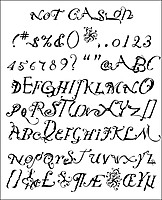 NOT CASLON
(#$%&() ..0123
456789? ""@ABC
DEFGHIJKLMNO
PQRSTUVWXYZ[]
ABCDEFGHIJKLM
NOPQRSTUVWXYZ